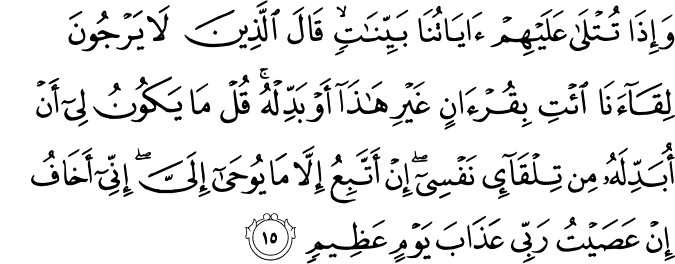 وَإِذَا تُتْلَىٰ عَلَيْهِمْ ءَايَاتُنَا بَيِّنَٰتٍۙ قَالَ ٱلَّذِينَ لَا يَرْجُونَ
لِقَآءَنَا ٱئْتِ بِقُرْءَانٍ غَيْرِ هَٰذَآ أَوْ بَدِّلْهُۚ قُلْ مَا يَكُونُ لِىٓ أَنْ
أُبَدِّلَهُۥ مِن تِلْقَآئِ نَفْسِىٓۖ إِنْ أَتَّبِعُ إِلَّا مَا يُوحَىٰٓ إِلَىَّۖ إِنِّىٓ أَخَافُ
إِنْ عَصَيْتُ رَبِّى عَذَابَ يَوْمٍ عَظِيمٍ ١٥